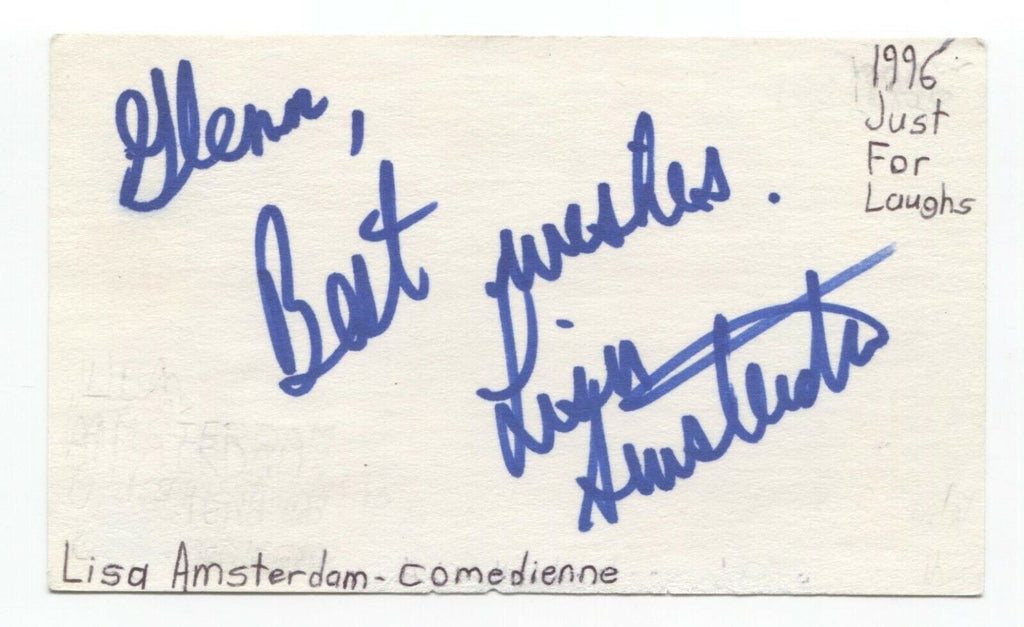 Glenn,
Best wishes.
Lisa
Amsterdam
1996
Just
For
Laughs
Lisa Amsterdam - comedienne